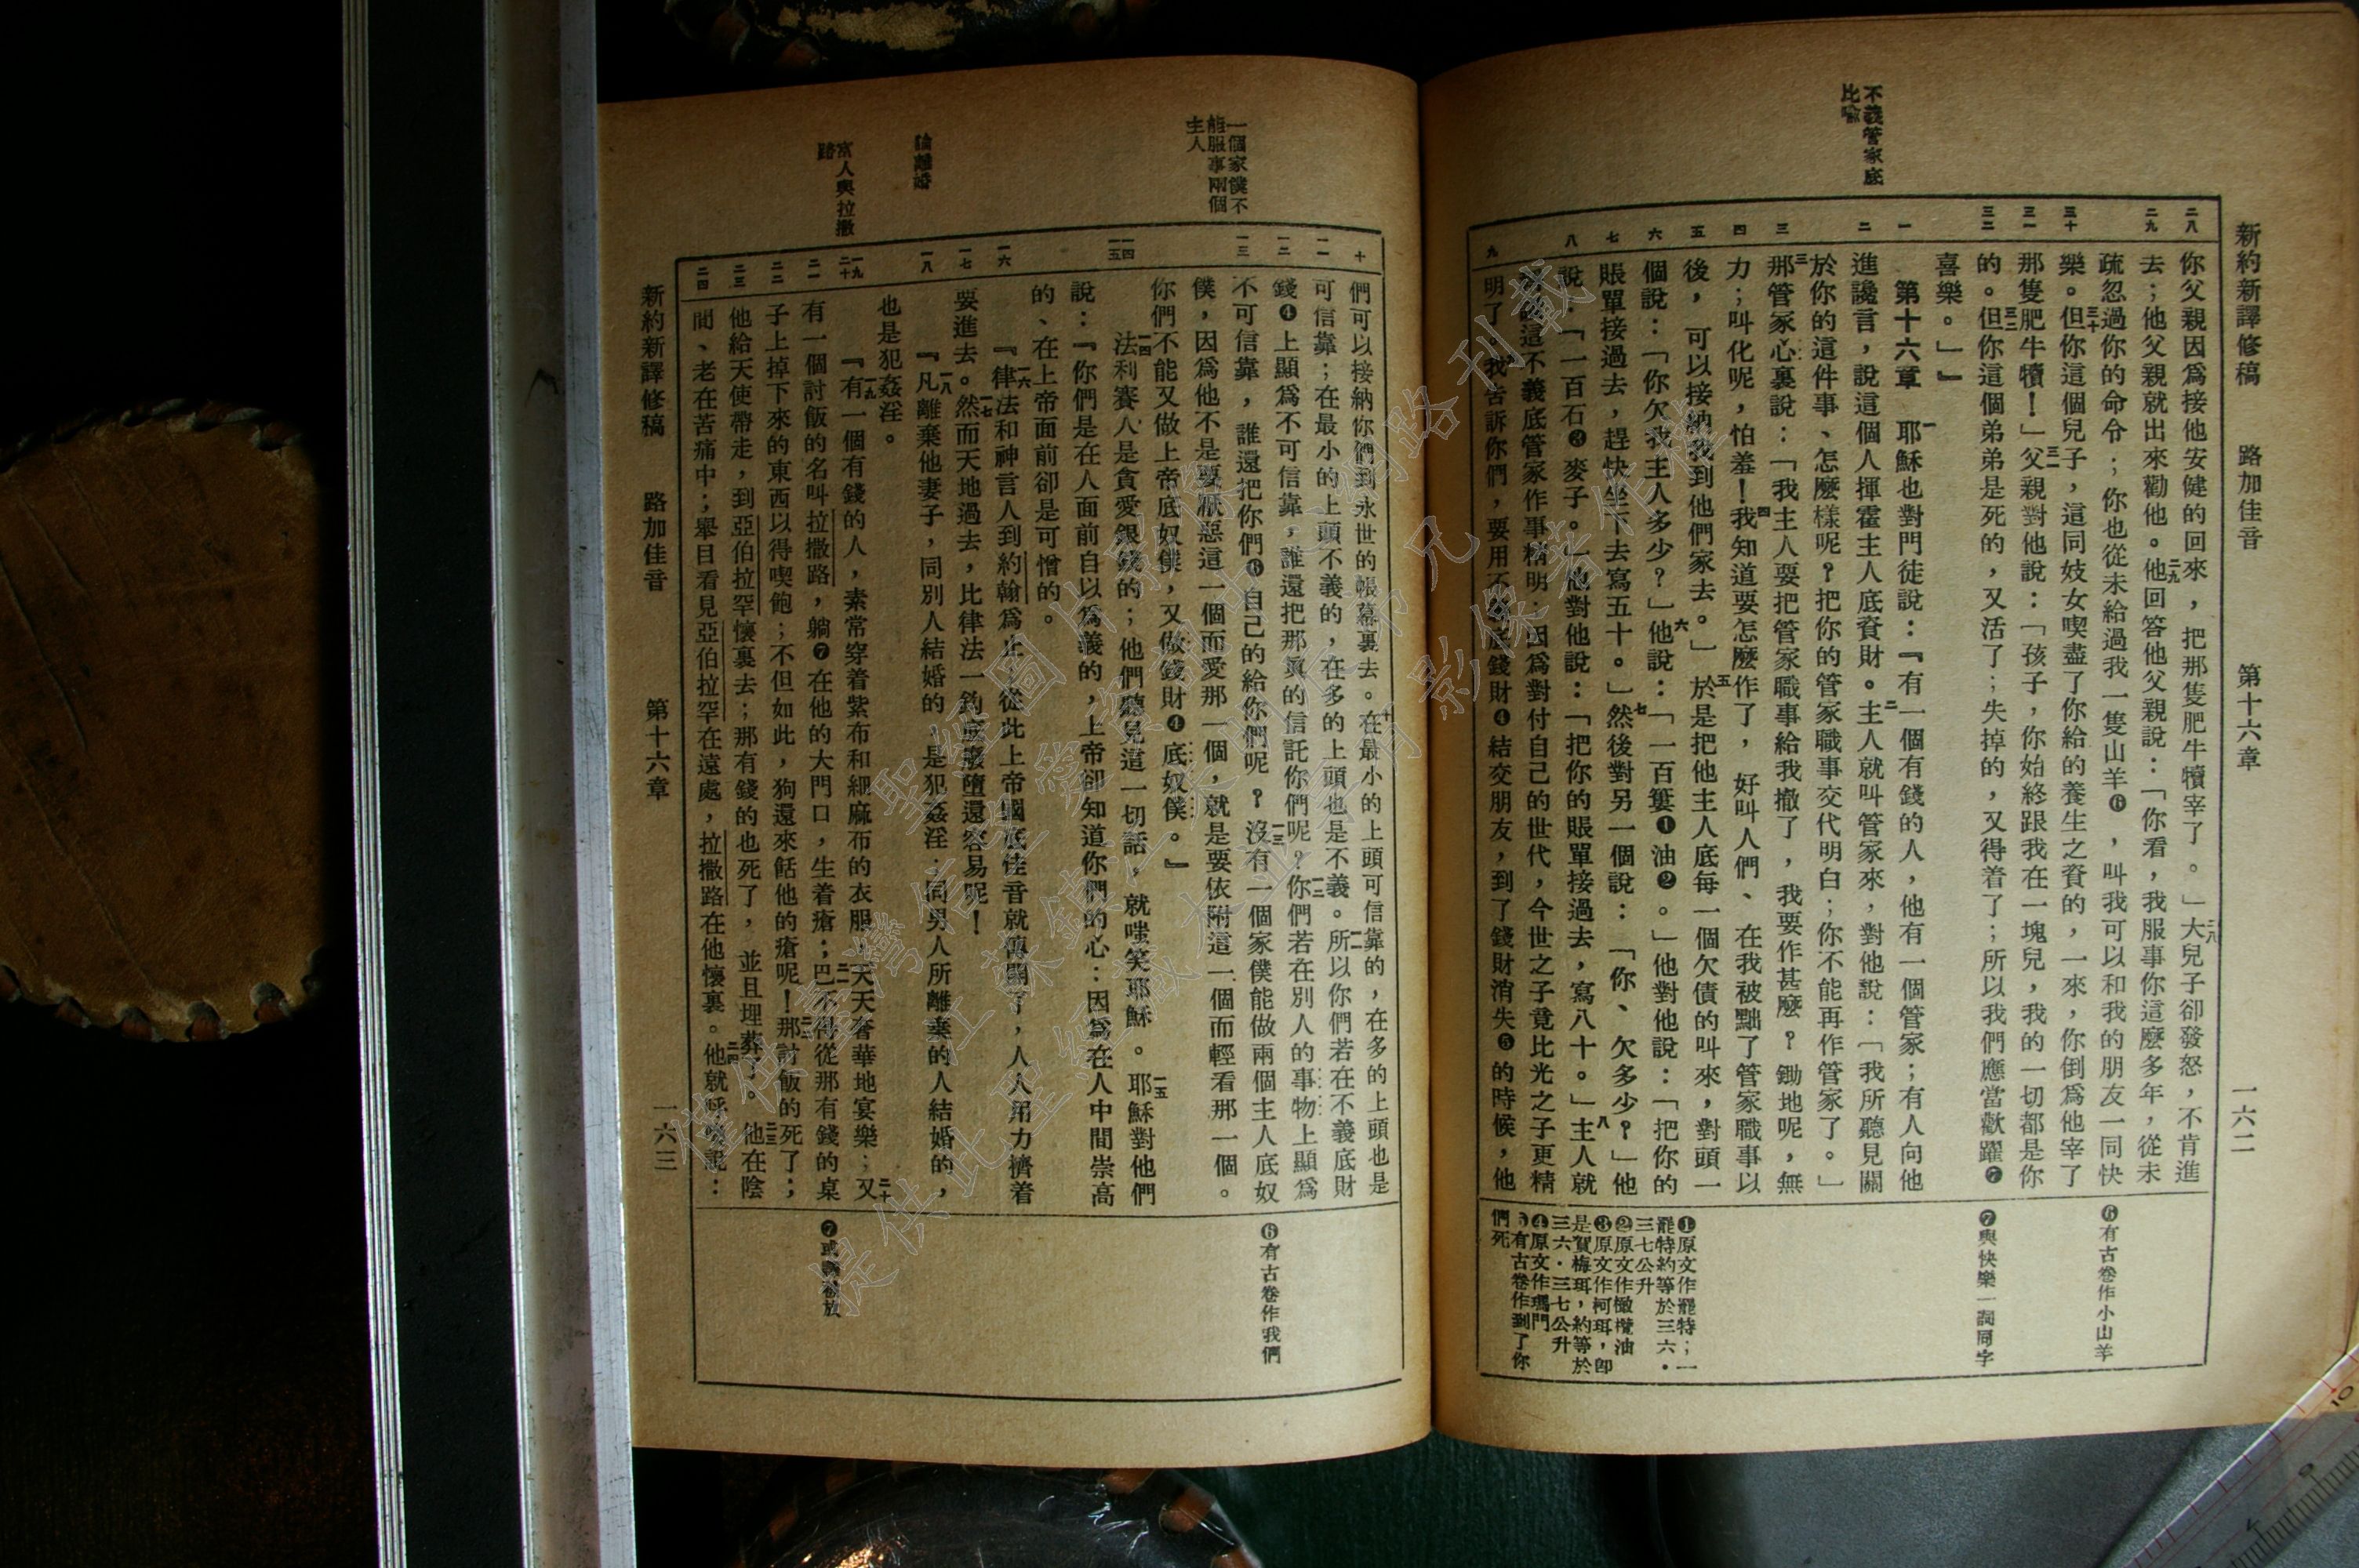 新約新譯修稿　路加佳音　第十六章　一六二
不義管家底
比喻
二八
二九
三十
三一
三二
一
二
三
四
五
六
七
八
九
你父親因爲接他安健的回來，把那隻肥牛犢宰了。」二八大兒子卻發怒，不肯進
去；他父親就出來勸他。二九他回答他父親說：「你看，我服事你這麼多年，從未
疏忽過你的命令；你也從未給過我一隻山羊❻，叫我可以和我的朋友一同快
樂。三十但你這個兒子，這同妓女喫盡了你給的養生之資的，一來，你倒爲他宰了
那隻肥牛犢！」三一父親對他說：「孩子，你始終跟我在一塊兒，我的一切都是你
的。三二但你這個弟弟是死的，又活了；失掉的，又得着了；所以我們應當歡躍❼
喜樂。」』
第十六章　一耶穌也對門徒說：『有一個有錢的人，他有一個管家；有人向他
進讒言，說這個人揮霍主人底資財。二主人就叫管家來，對他說：「我所聽見關
於你的這件事、怎麼樣呢？把你的管家職事交代明白；你不能再作管家了。」
三那管家心裏說：「我主人要把管家職事給我撤了，我要作甚麼？鋤地呢，無
力；叫化呢，怕羞！四我知道要怎麼作了，好叫人們、在我被黜了管家職事以
後，可以接納我到他們家去。」五於是把他主人底每一個欠債的叫來，對頭一
個說：「你欠我主人多少？」六他說：「一百簍❶油❷。」他對他說：「把你的
賬單接過去，趕快坐下去寫五十。」七然後對另一個說：「你、欠多少？」他
說：「一百石❸麥子。」他對他說：「把你的賬單接過去，寫八十。」八主人就
這不義底管家作事精明；因爲對付自己的世代，今世之子竟比光之子更精
明了。九我告訴你們，要用不義底錢財❹結交朋友，到了錢財消失❺的時候，他
❻有古卷作小山羊
❼與快樂一詞同字
❶原文作罷特；一
罷特約等於三六・
三七公升
❷原文作橄欖油
❸原文作柯珥，卽
是賀梅珥，約等於
三六・三七公升
❹原文作瑪門
❺有古卷作到了你
們死
一個家僕不
能服事兩個
主人
論離婚
富人與拉撒
路
十
一一
一二
一三
一四
一五
一六
一七
一八
一九
二十
二一
二二
二三
二四
們可以接納你們到永世的帳幕裏去。十在最小的上頭可信靠的，在多的上頭也是
可信靠；在最小的上頭不義的，在多的上頭也是不義。一一所以你們若在不義底財
錢❹上顯爲不可信靠，誰還把那眞的信託你們呢？一二你們若在別人的事物上顯爲
不可信靠，誰還把你們❻自己的給你們呢？一三沒有一個家僕能做兩個主人底奴
僕，因爲他不是要厭惡這一個而愛那一個，就是要依附這一個而輕看那一個。
你們不能又做上帝底奴僕，又做錢財❹底奴僕。』
一四法利賽人是貪愛銀錢的；他們聽見這一切話，就嗤笑耶穌。一五耶穌對他們
說：『你們是在人面前自以爲義的，上帝卻知道你們的心：因爲在人中間崇高
的、在上帝面前卻是可憎的。
一六『律法和神言人到約翰爲止；從此上帝國底佳音就傳開了，人人用力擠着
要進去。一七然而天地過去，比律法一鈎底廢墮還容易呢！
一八『凡離棄他妻子，同別人結婚的，是犯姦淫；同男人所離棄的人結婚的，
也是犯姦淫。
一九『有一個有錢的人，素常穿着紫布和細麻布的衣服，天天奢華地宴樂；二十又
有一個討飯的名叫拉撒路，躺❼在他的大門口，生着瘡；二一巴不得從那有錢的桌
子上掉下來的東西以得喫飽；不但如此，狗還來餂他的瘡呢！二二那討飯的死了；
他給天使帶走，到亞伯拉罕懷裏去；那有錢的也死了，並且埋葬了。二三他在陰
間、老在苦痛中；舉目看見亞伯拉罕在遠處，拉撒路在他懷裏。二四他就呼喚說：
❻有古卷作我們
新約新譯修稿　路加佳音　第十六章　一六三